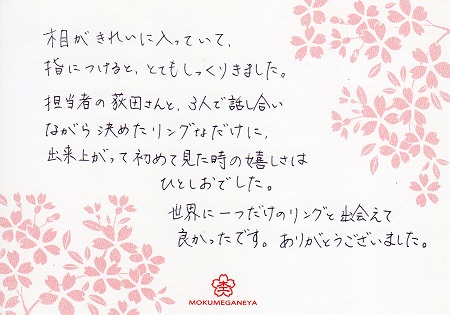 相がきれいに入っていて、
指につけると、とてもしっくりきました。
担当者の荻田さんと、3人で話し合い
ながら決めたリングなだけに、
出来上がって初めて見た時の嬉しさは
ひとしおでした。
世界に一つだけのリングと出会えて
良かったです。ありがとうございました。
MOKUMEGANEYA